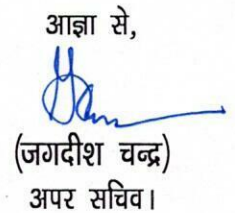 आज्ञा से,
(जगदीश चन्द्र)
अपर सचिव।